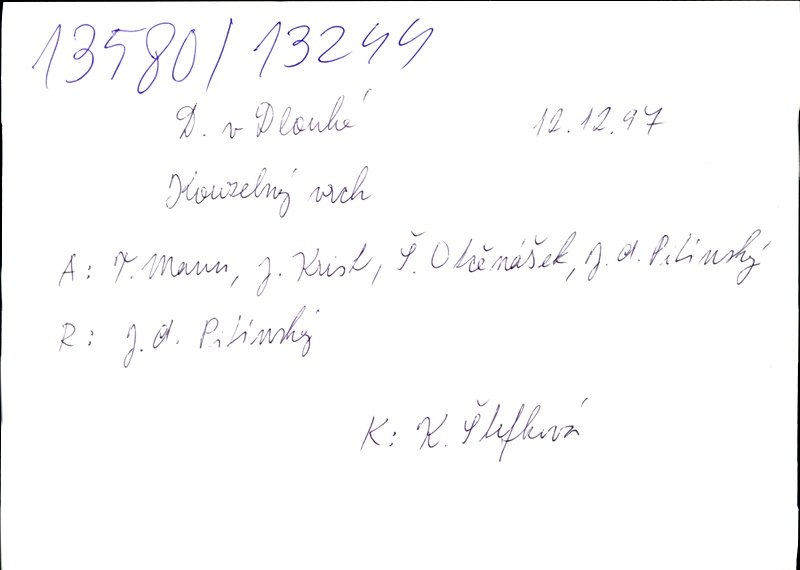 13580/13244
D. v Dlouhé 12.12.97
Kouzelný vrch
A: T. Mann, J. Krist, Š. Otčenášek, J. A. Pitínský
R: J. A. Pitínský
K: K. Štefková